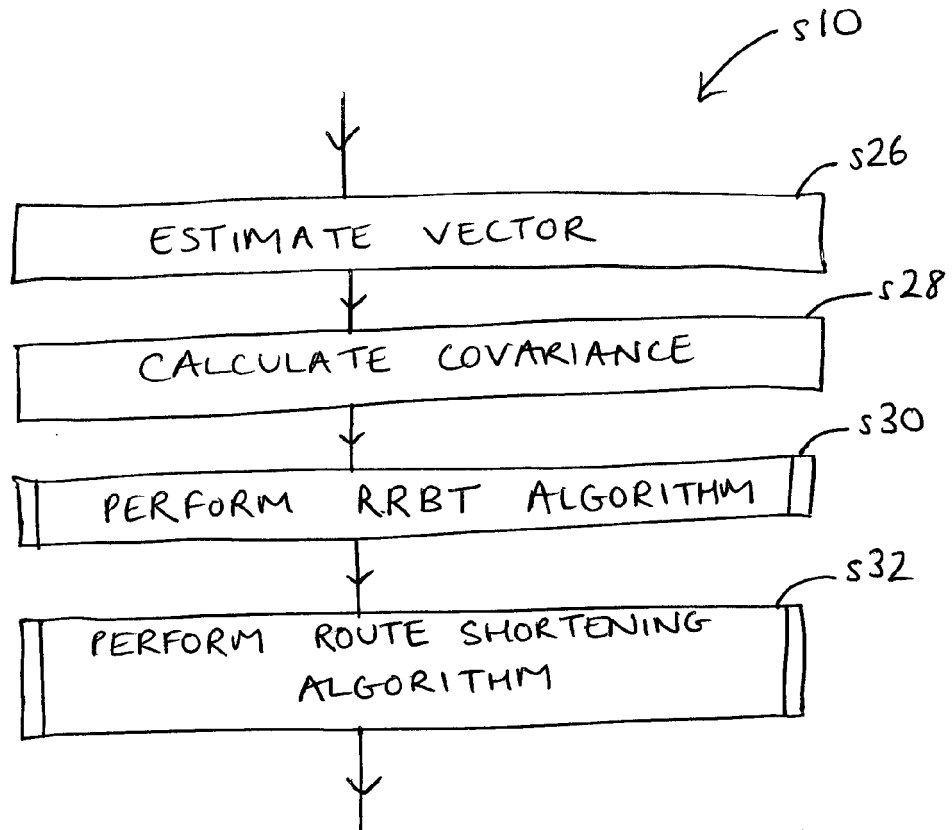 s10
s26
ESTIMATE VECTOR
s28
CALCULATE COVARIANCE
s30
PERFORM RRBT ALGORITHM
s32
PERFORM ROUTE SHORTENING
ALGORITHM